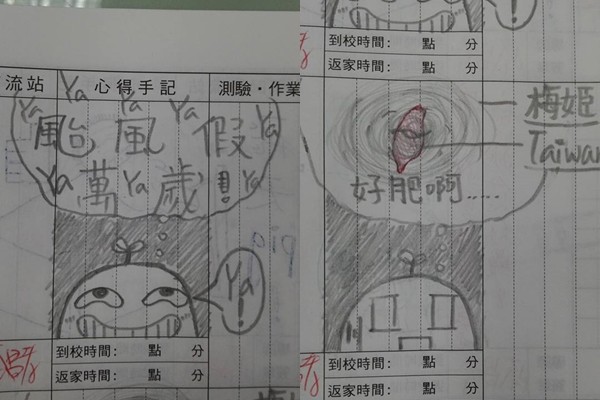 流站 心得手記 測驗·作業
Ya Ya Ya Ya
颱風假 Ya
Ya 萬 Ya 歲!! Ya
Ya!
到校時間: 點 分
返家時間: 點 分
到校時間: 點 分
返家時間: 點 分
梅姬
Taiwan
好肥啊.....
到校時間: 點 分
返家時間: 點 分